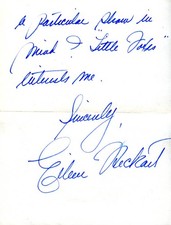 a particular show in
mind. "Little Foxes"
interests me.
Sincerely,
Eileen Heckart